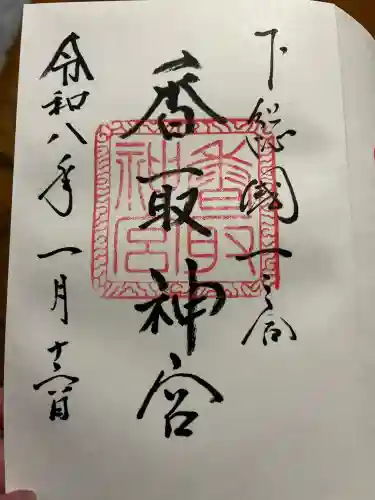 下総國一之宮
香取神宮
香取
神宮
令和八年一月十六日